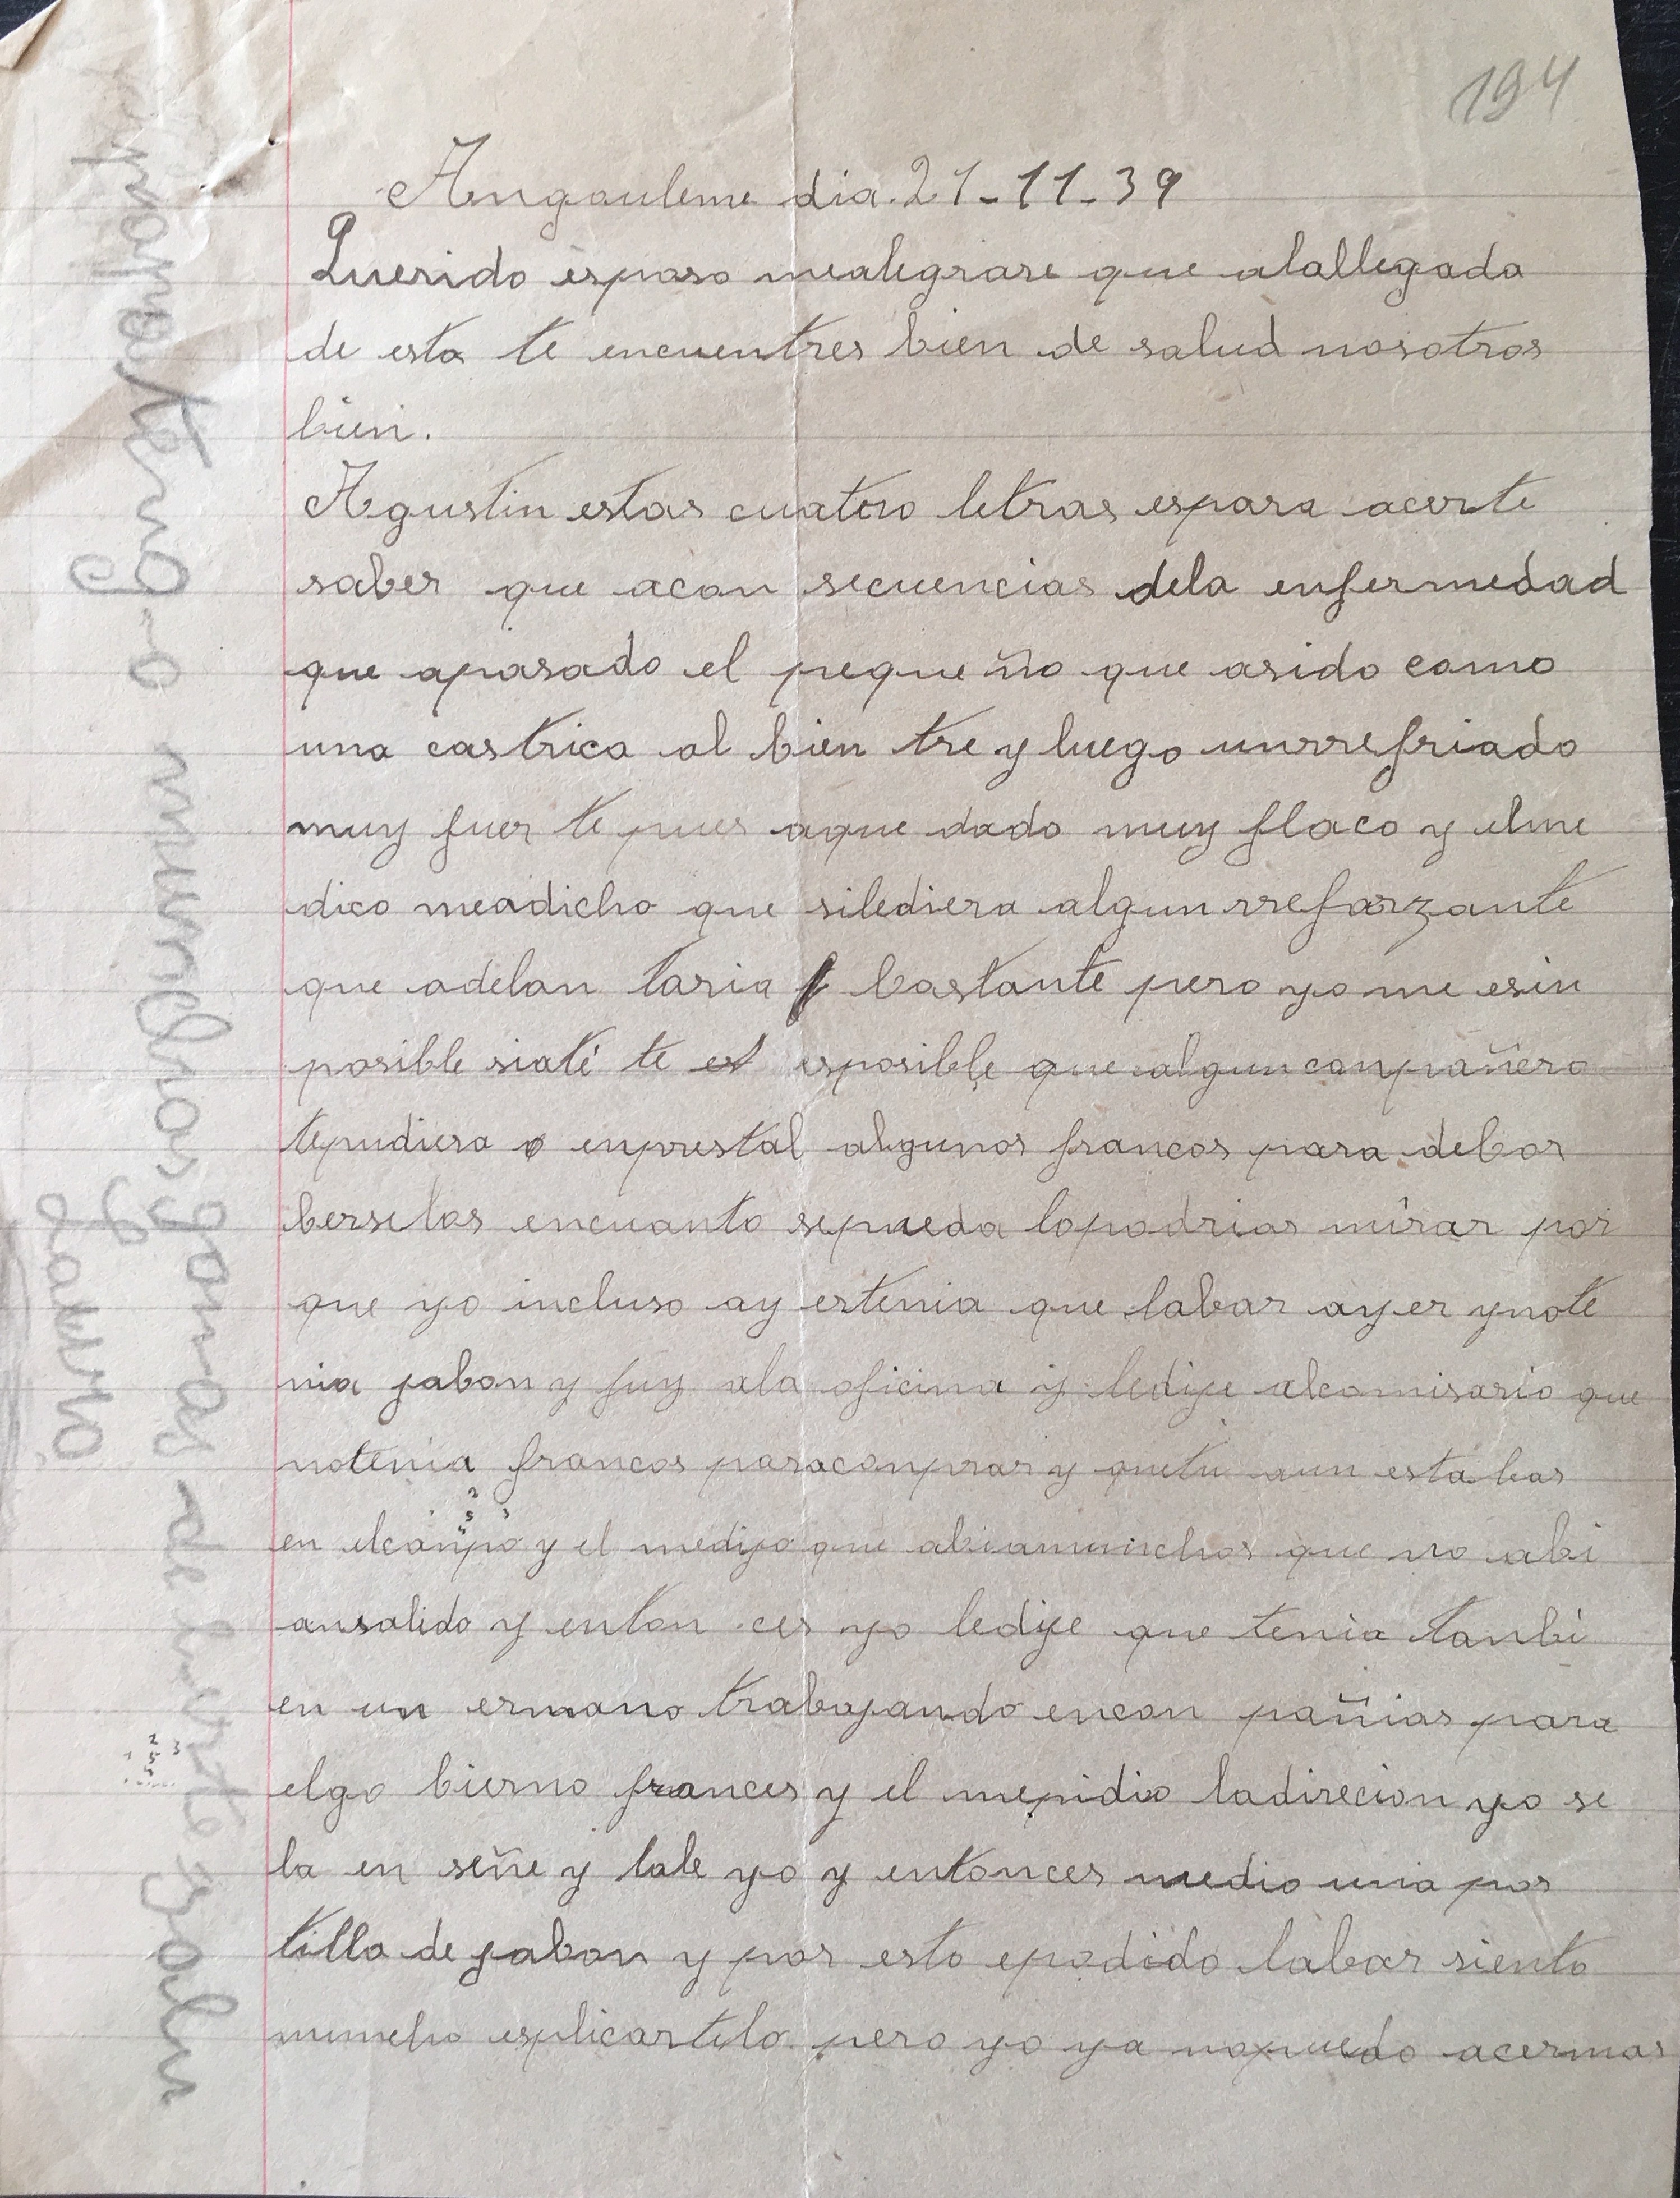 194
Angouleme dia. 21-11-39
Querido esposo mealegrare que alallegada
de esta te encuentres bien de salud nosotros
bien.
Agustin estas cuatro letras espara acerte
saber que acon secuencias dela enfermedad
que apasado el peque ño que asido como
una castrica al bien tre y luego unrrefriado
muy fuer te pues aque dado muy flaco y elme
dico meadicho que silediera algun rreforzante
que adelan taria bastante pero yo me esin
posible siatí te es esposible que algun conpañero
tepudiera o enprestal algunos francos para debor
berselos encuanto sepueda lopodrias mirar por
que yo incluso ay ertenia que labar ayer ynote
nia jabon y fuy ala oficina y ledije alcomisario que
notenia francos paraconprar y quetu aun esta bas
en elcanpo y el medijo que abiamuchos que no abi
ansalido y enton ces yo ledije que tenia tanbi
en un ermano trabajando encon pañias para
elgo bierno frances y el mepidio ladirecion yo se
la en señe y lale yo y entonces medio una pas
tilla de jabon y por esto epodido labar siento
muncho esplicartelo pero yo ya nopuedo acermas
papa yo teng-o munchas ganas de berte salu
Dario